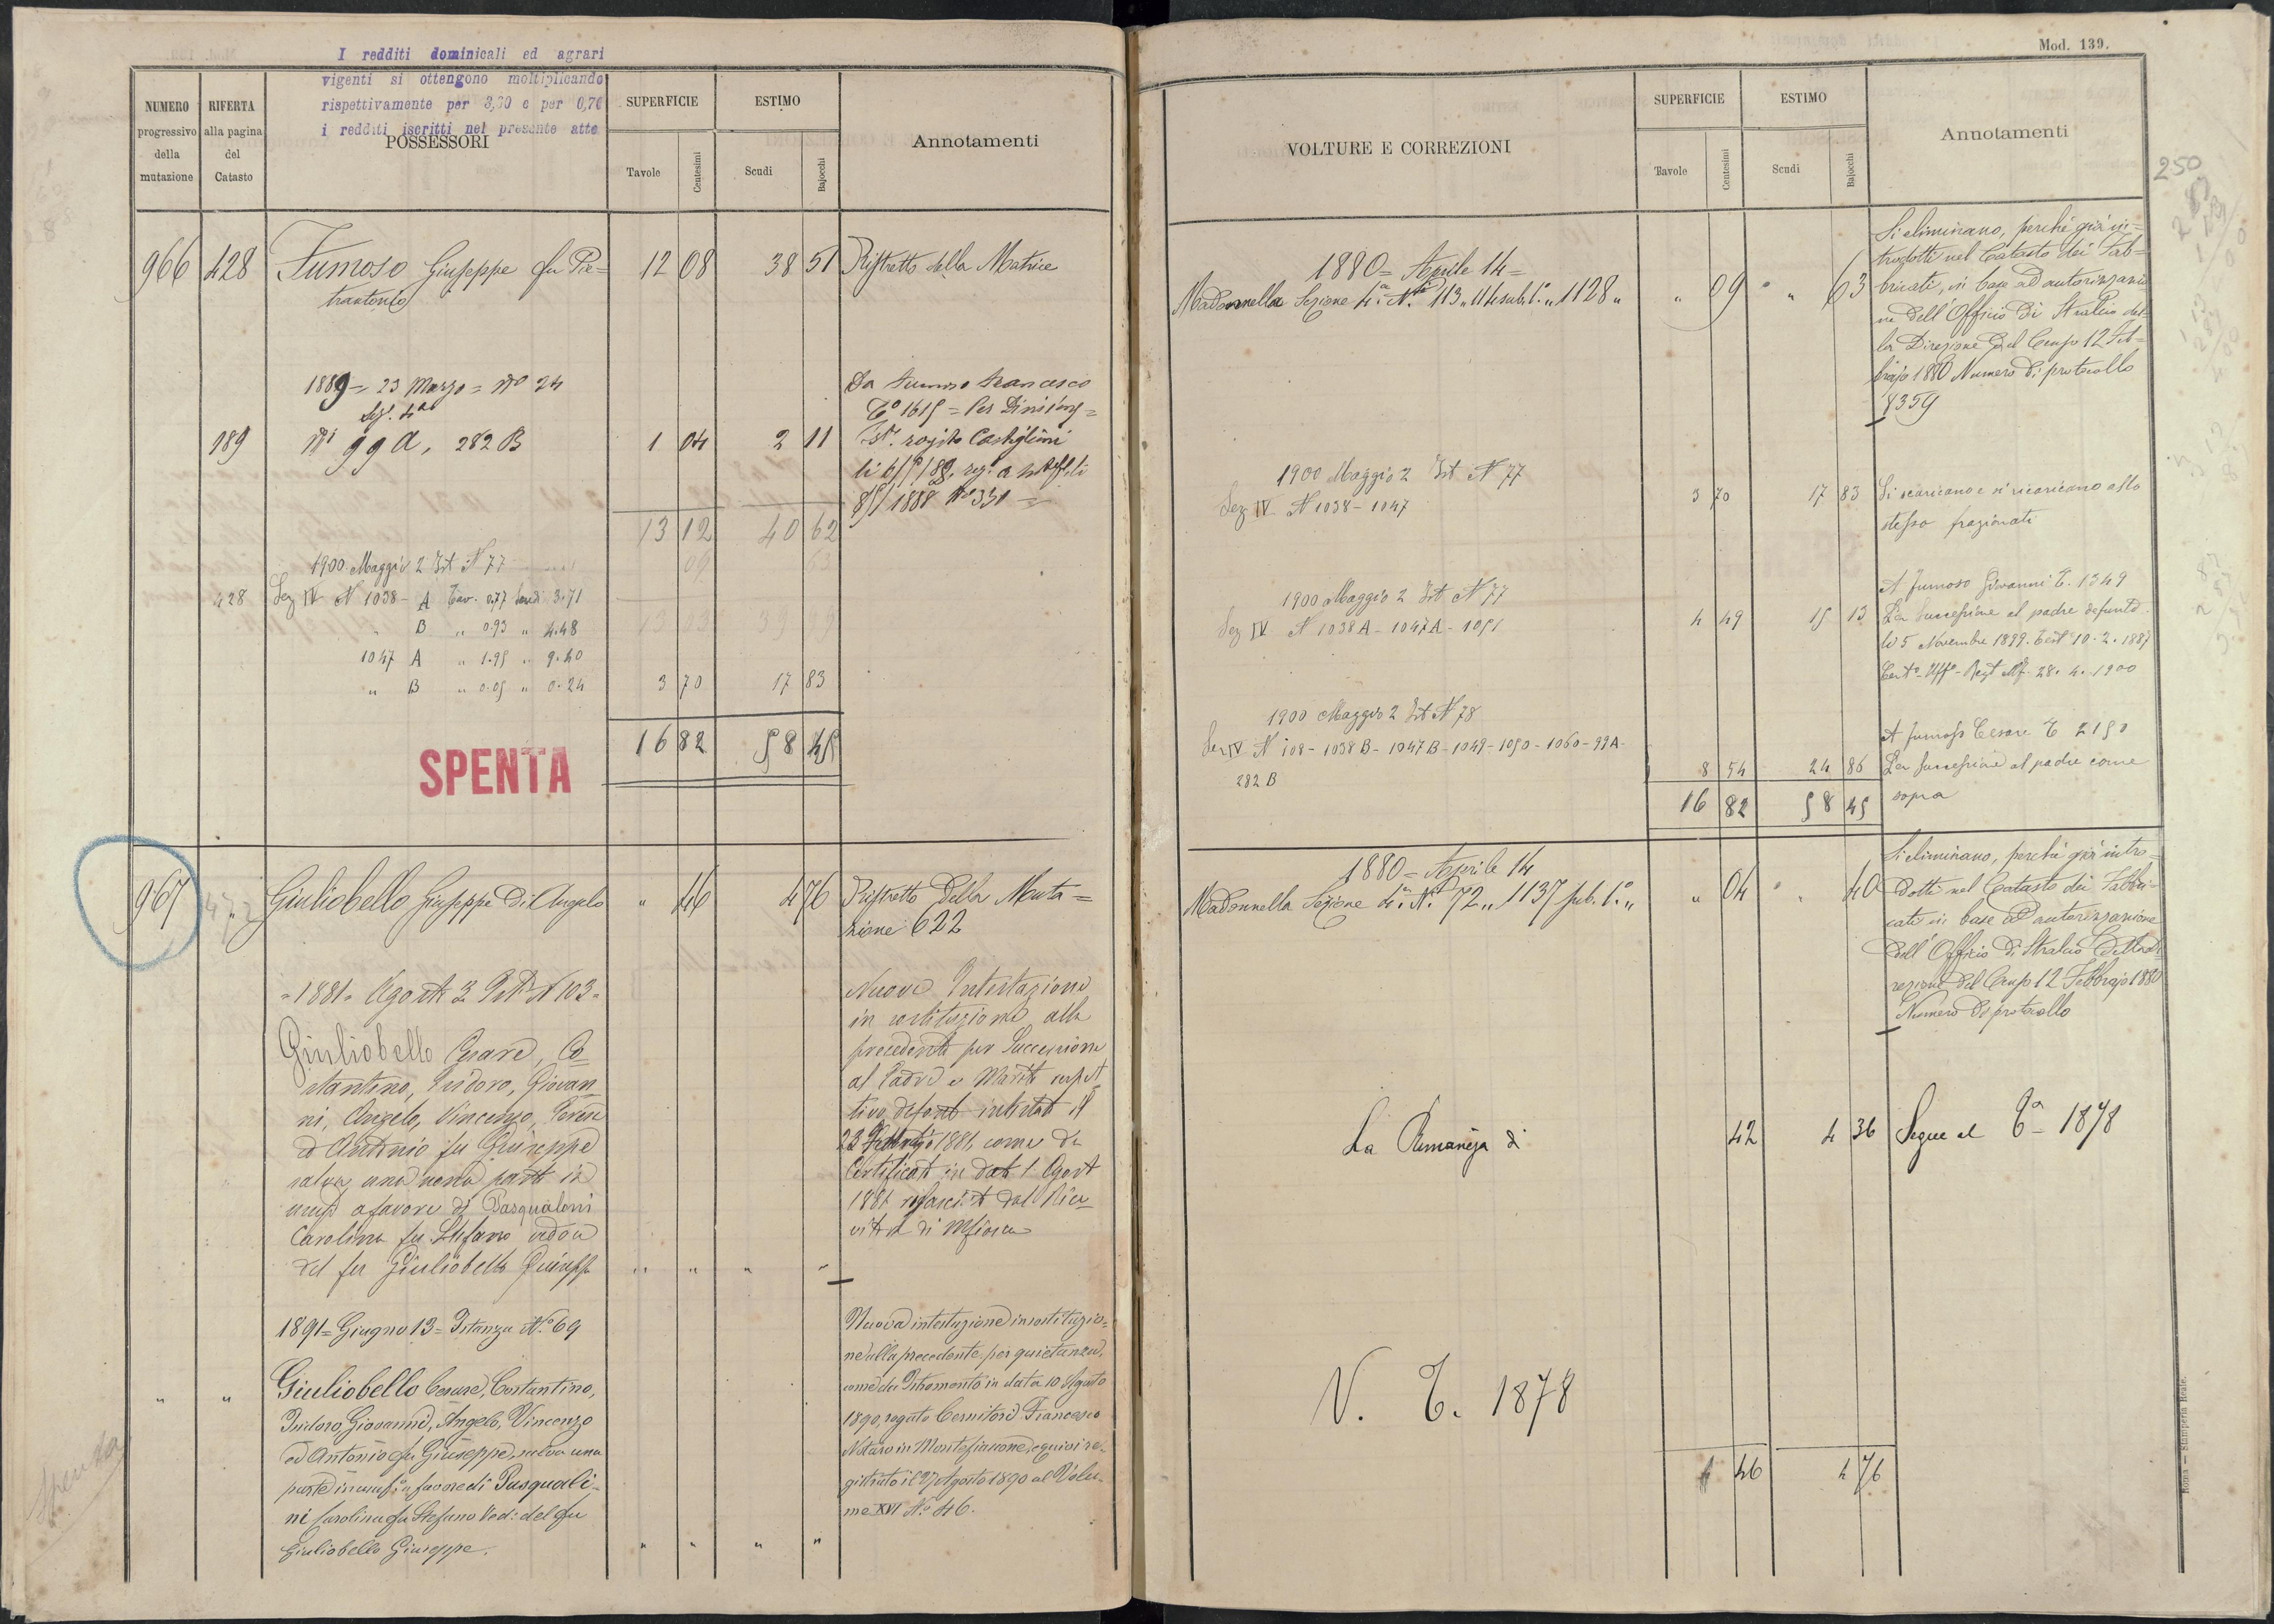 I redditi dominicali ed agrari
vigenti si ottengono moltiplicando
rispettivamente per 3,30 e per 0,70
i redditi iscritti nel presente atto
NUMERO
progressivo
della
mutazione
RIFERTA
alla pagina
del
Catasto
POSSESSORI
SUPERFICIE
Tavole
Centesimi
ESTIMO
Scudi
Bajocchi
Annotamenti
966 428 Fumoso Giuseppe fu Pie= 12 08 38 51 Ristretto della Matrice
trantonio
1889 = 23 Marzo = No 24
Sez. 4a
189 Ni 99 A, 282 B 1 04 2 11
Da Fumoso Francesco
To 1615 = Per Divisione =
Ist. rogito Castiglioni
8/5/1888 No 331 =
13 12 40 62
09 63
13 03 39 99
1900 Maggio 2 Ist N 77
428 Sez IV N 1038 - A Tav. 0.77 Scudi 3.71
B " 0.93 " 4.48
1047 A " 1.95 " 9.40
" B " 0.05 " 0.24
3 70 17 83
16 82 58 45
SPENTA
967 " 472 Giuliobello Giuseppe di Angelo " 46 4 76 Ristretto della Muta=
zione 622
=1881= Agosto 3 Ist N 103=
Giuliobello Cesare, Co
stantino, Isidoro, Giovan
ni, Angelo, Vincenzo, Teresa
ed Antonio fu Giuseppe
salva una nona parte in
usuf a favore di Pasqualoni
Carolina fu Stefano vedova
del fu Giuliobello Giuseppe " " " "
Nuova Intestazione
in sostituzione alla
precedente per Successione
al Padre e Marito rispet
tivo defunto intestato il
23 1881 come da
Certificato in data 1 Agosto
1881 rilasciato dal Rice
vitore di Mfiascone
1891 = Giugno 13 = Istanza No 69
" " Giuliobello Cesare, Costantino,
Isidoro, Giovanni, Angelo, Vincenzo
ed Antonio fu Giuseppe, salva una
parte in usuf. in favore di Pasquali=
ni Carolina fu Stefano Ved: del fu
Giuliobello Giuseppe. " " " "
Nuova intestazione in sostituzio=
ne alla precedente per quietanza,
come da Istromento in data 10 Agosto
1890, rogato Cernitori Francesco
Notaro in Montefiascone, e quivi re=
gistrato il 27 Agosto 1890 al Volu=
me XVI No 46.
Spenta
Mod. 139.
VOLTURE E CORREZIONI
SUPERFICIE
Tavole
Centesimi
ESTIMO
Scudi
Bajocchi
Annotamenti
250
1880 = Aprile 14 =
Madonnella Sezione 4a. Ni 113 " 114 sub. 1o " 1128 " " 09 " 63
Si eliminano, perchè già in=
trodotti nel Catasto dei Fab=
bricati, in base ad autorizzazio
ne dell'Officio di Stralcio del=
la Direzione del Censo 12 Feb=
brajo 1880 Numero di protocollo
8359
1900 Maggio 2 Ist N 77
Sez IV N 1038 - 1047 3 70 17 83
Si scaricano e si ricaricano allo
stesso frazionati
1900 Maggio 2 Ist N 77
Sez IV N 1038 A - 1047 A - 1051 4 49 15 13
A Fumoso Giovanni T. 1349
Per Successione al padre defunto
li 5 Novembre 1899. Test 10. 2. 1887
Certo. Uffo. Regt Mf. 28. 4. 1900
1900 Maggio 2 Ist N 78
Sez IV N 108 - 1038 B - 1047 B - 1049 - 1050 - 1060 - 99 A -
282 B 8 54 24 86
A Fumoso Cesare T 2150
Per Successione al padre come
sopra
16 82 58 45
1880 = Aprile 14
Madonnella Sezione 4a. Ni 72 " 1137 sub. 1o " " 04 " 40
Si eliminano, perchè già intro=
dotti nel Catasto dei Fabbri=
cati in base ad autorizzazione
dell'Offizio di Stralcio della Di=
rezione del Censo 12 Febbrajo 1880
Numero di protocollo
La Rimanenza di 42 4 36 Segue al To 1878
V. T. 1878
46 4 76
Roma — Stamperia Reale.